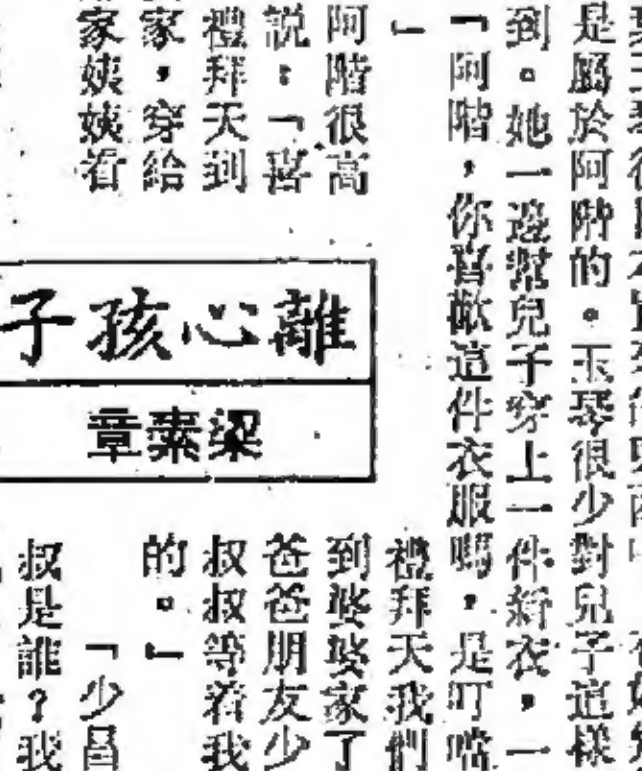 是屬於阿階的。玉琴很少對兒子這樣
到。她一邊幫兒子穿上一件新衣,一
「阿階,你喜歡這件衣服嗎,是叮噹
」
阿階很高
説:「喜
禮拜天到
家,穿給
家姨姨看
離心孩子
梁素章
禮拜天我們
到婆婆家了
爸爸朋友少
叔叔等着我
的。」
「少昌
叔是誰?我